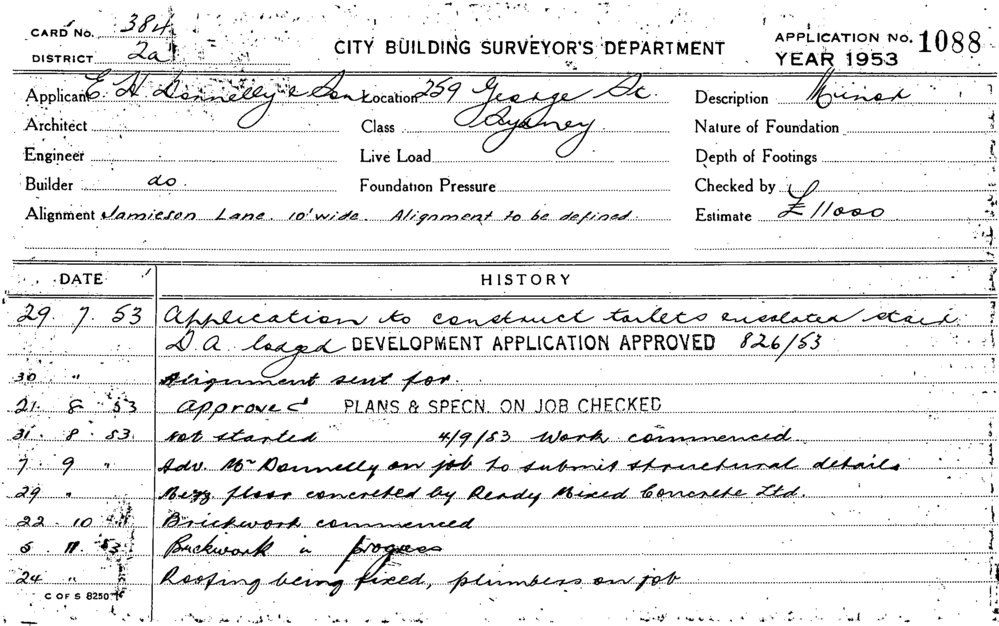 CARD No. 384
DISTRICT 2a
CITY BUILDING SURVEYOR'S DEPARTMENT
APPLICATION No. 1088
YEAR 1953
Applicant E H Donnelly & Son Location 259 George St. Sydney Description Minor
Architect Class Nature of Foundation
Engineer Live Load Depth of Footings
Builder do. Foundation Pressure Checked by
Alignment Jamieson Lane. 10' wide. Alignment to be defined. Estimate £11000
DATE HISTORY
29 7 53 Application to construct toilets stair
D.A. lodged DEVELOPMENT APPLICATION APPROVED 826/53
30 " Alignment sent for.
21. 8 53 Approved PLANS & SPECN. ON JOB CHECKED
31. 8. 53. Not started 4/9/53 Work commenced
7. 9 " Adv. Mr Donnelly on job to submit structural details
29 " Mezz floor concreted by Ready Mixed Concrete Ltd.
22. 10 Brickwork commenced
5 11 53 Brickwork in progress
24 " Roofing being fixed, plumbers on job
C OF S 8250